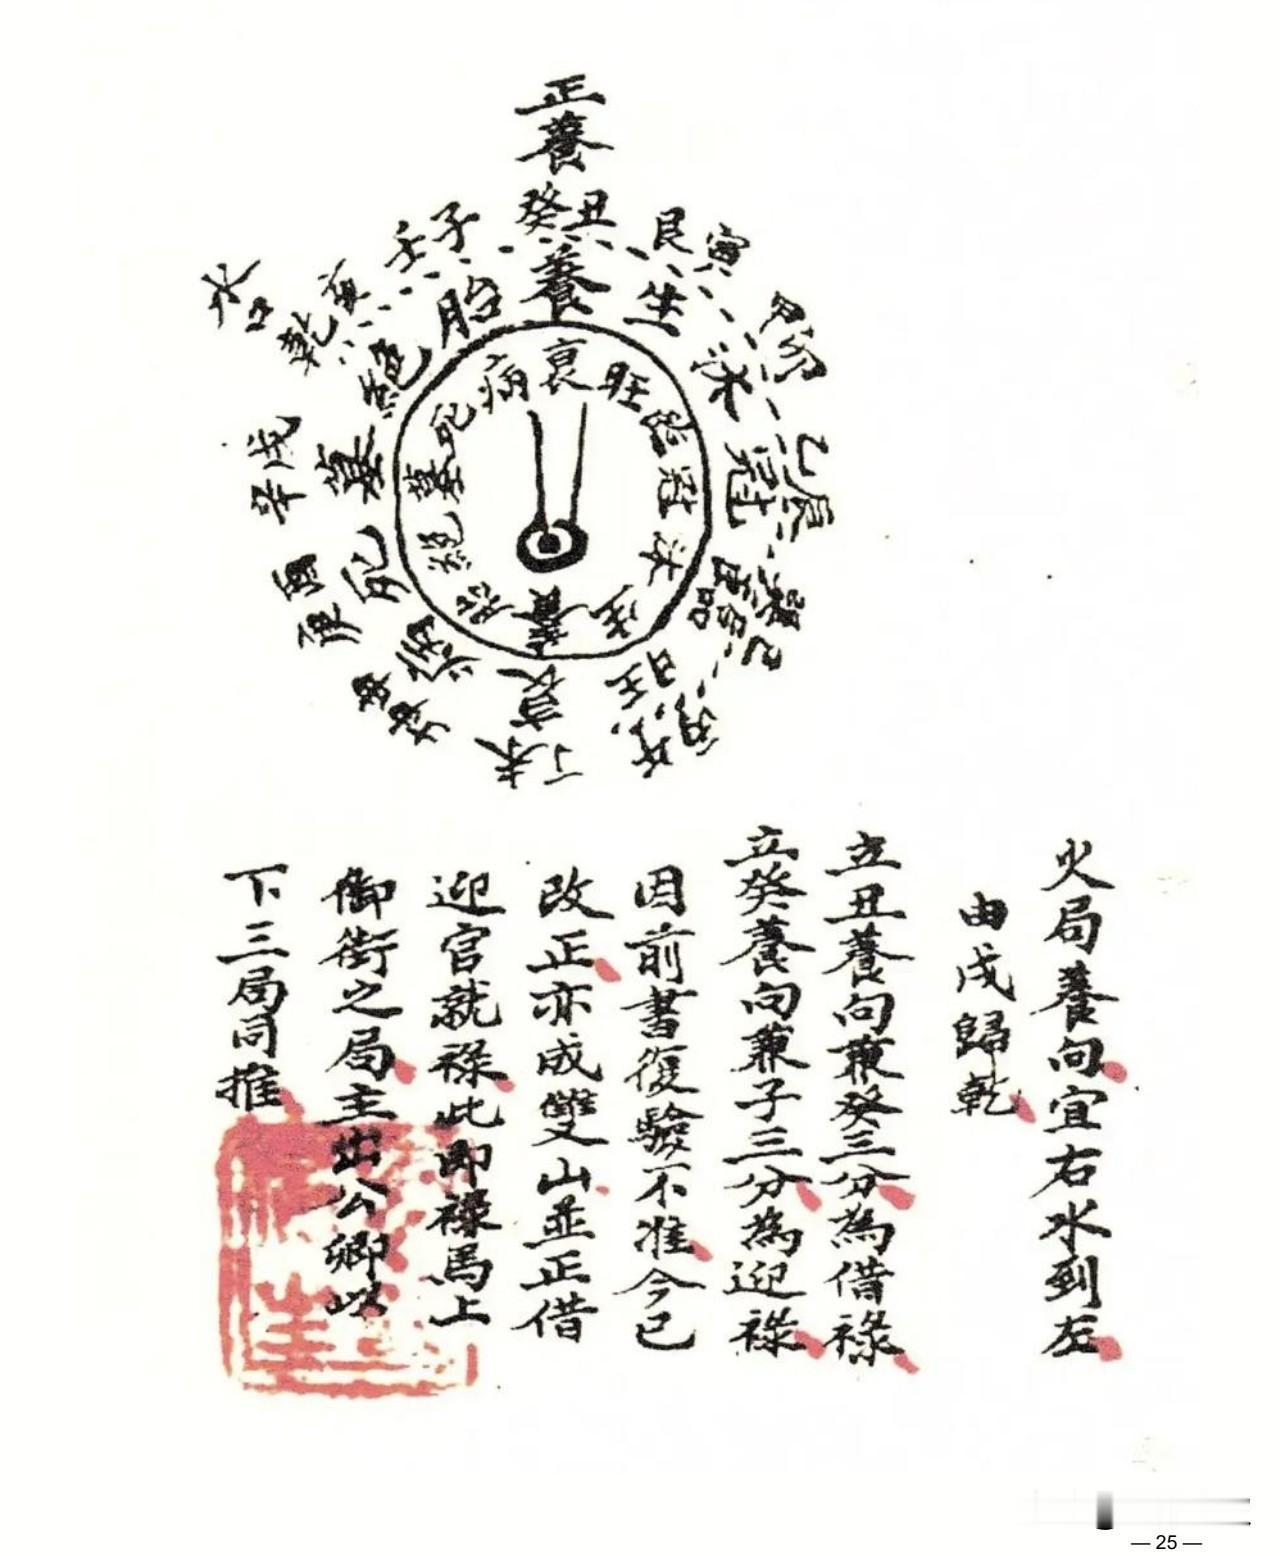 正養
癸丑
艮寅
甲卯
乙辰
巽巳
丙午
丁未
坤申
庚酉
辛戌
乾亥
壬子
水口
養
生
沐
冠
臨官
旺
衰
病
死
墓
絕
胎
衰
旺
臨
冠
沐
生
養
胎
絕
墓
死
病
火局養向宜右水到左
由戌歸乾
立丑養向兼癸三分為借祿
立癸養向兼子三分為迎祿
因前書復驗不准今已
改正亦成雙山並正借
迎官就祿此即祿馬上
御街之局主出公卿以
下三局同推
— 25 —